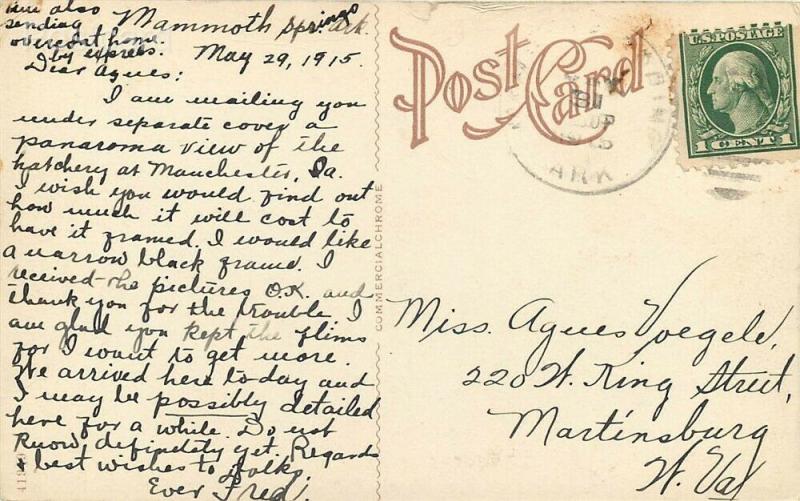 am also
sending
overcoat home.
by express.
Mammoth Springs Ark.
May 29, 1915.
Dear Agnes:
I am mailing you
under separate cover a
panaroma view of the
hatchery at Manchester, Ia.
I wish you would find out
how much it will cost to
have it framed. I would like
a narrow black frame. I
received the pictures O.K. and
thank you for the trouble. I
am glad you kept the flims
for I want to get more.
We arrived here to-day and
I may be possibly detailed
here for a while. Do not
know, definitely yet. Regards
& best wishes to folks.
Ever Fred.
COMMERCIALCHROME
Post Card
ARK
U.S. POSTAGE
1 CENT 1
Miss. Agnes Voegele,
220 W. King Street,
Martinsburg
W. Va.